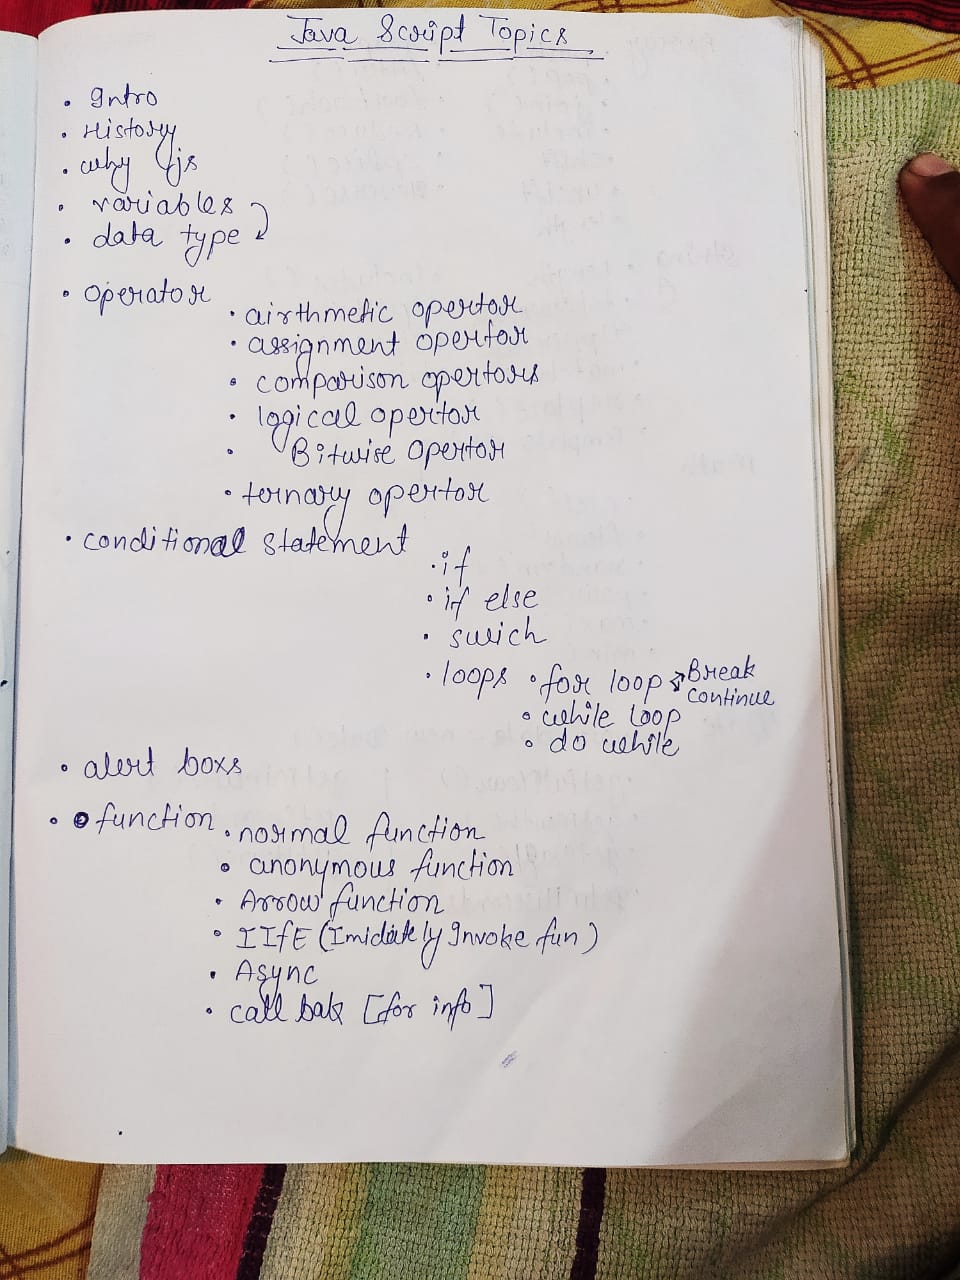 Java Script Topics
• Intro
• History
• why js
• variables
• data type
• operator
• airthmetic opertor
• assignment opertor
• comparison opertors
• logical opertor
• Bitwise Opertor
• ternary opertor
• conditional statement
• if
• if else
• swich
• loops • for loop Break
continue
• while loop
• do while
• alert boxs
• function • normal function
• anonymous function
• Arrow function
• IIfE (Imidiately Invoke fun)
• Async
• call bak [for info]